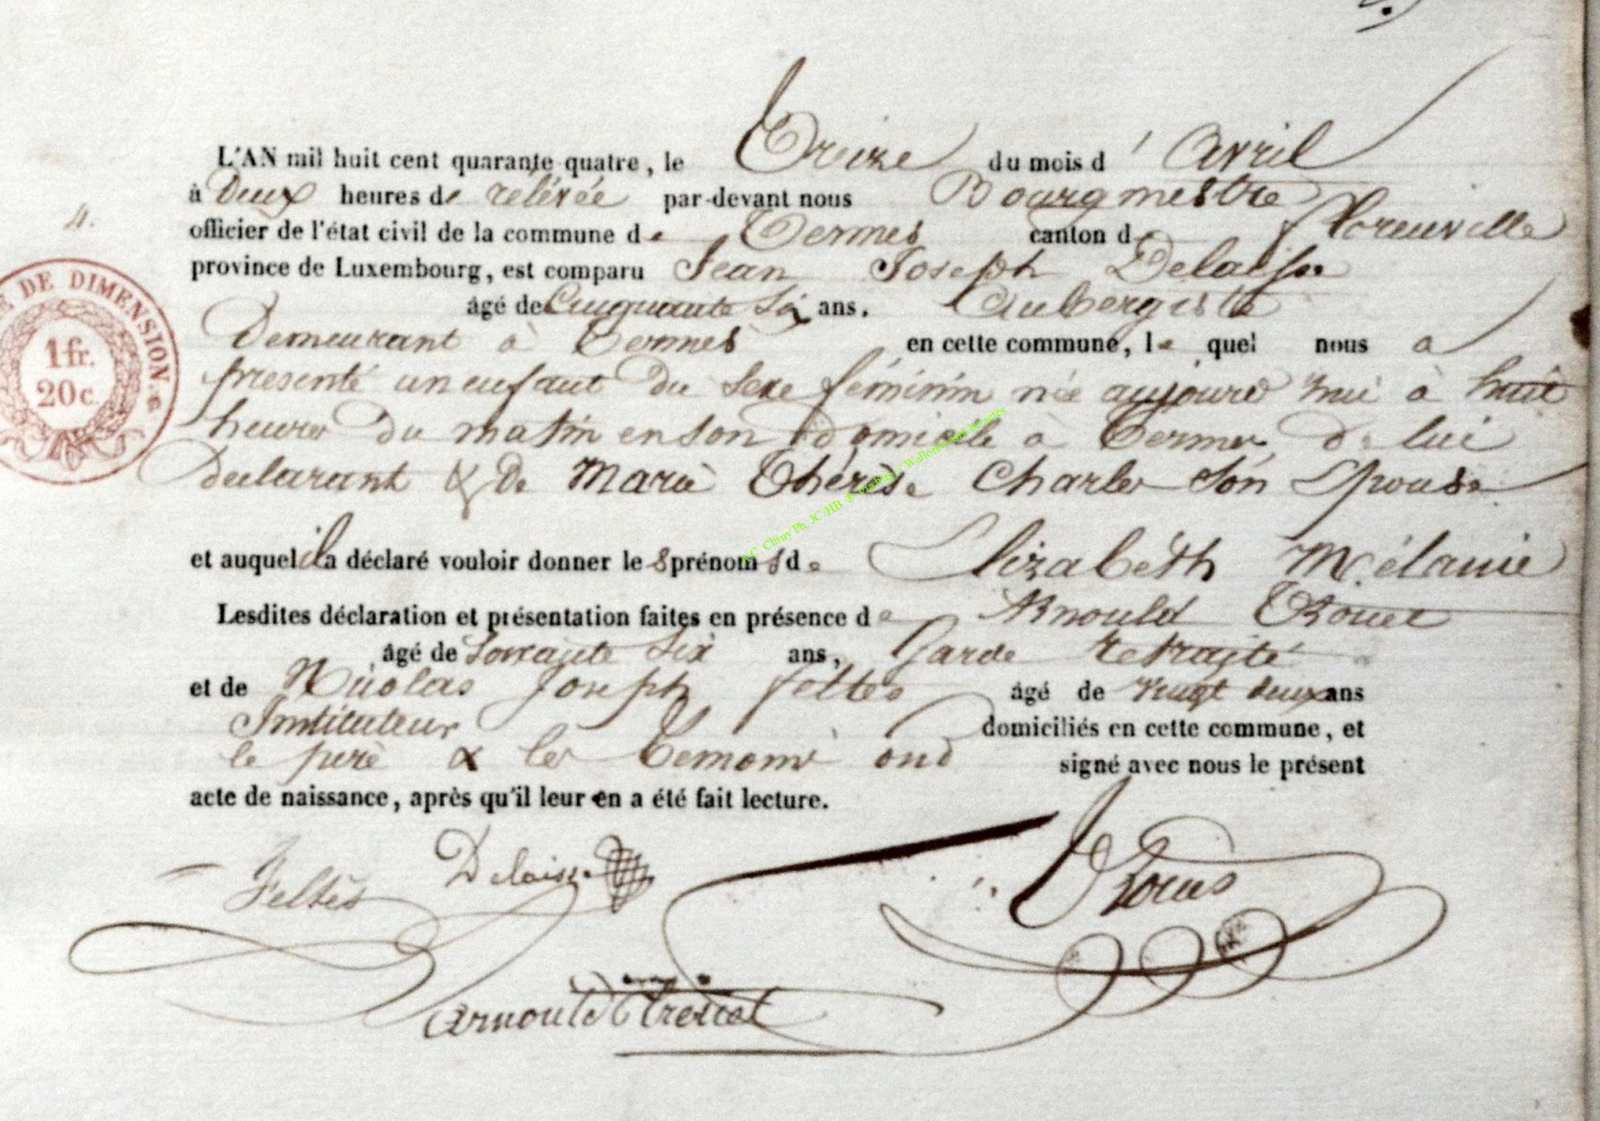 4.
E DE DIMENSION. &
1 fr.
20 c.
L'AN mil huit cent quarante quatre, le Treize du mois d' Avril
à Deux heures de relévée par-devant nous Bourgmestre
officier de l'état civil de la commune de Termes canton de florenville
province de Luxembourg, est comparu Jean Joseph Delaisse
âgé de Cinquante Six ans. Aubergiste
Demeurant à Termes en cette commune, le quel nous a
presenté un enfant du sexe féminin née aujourd'hui à huit
heures du matin en son domicile à Termes De lui
Declarant & De Marie Thérèse Charles Son Epouse
et auquel il a déclaré vouloir donner les prénoms de Elizabeth Mélanie
Lesdites déclaration et présentation faites en présence de Arnould
âgé de Soixante Six ans, Garde retraité
et de Nicolas Joseph feltes âgé de vingt deux ans
Instituteur domiciliés en cette commune, et
le père & les Temoins ond signé avec nous le présent
acte de naissance, après qu'il leur en a été fait lecture.
Feltès Delaisse
Arnould